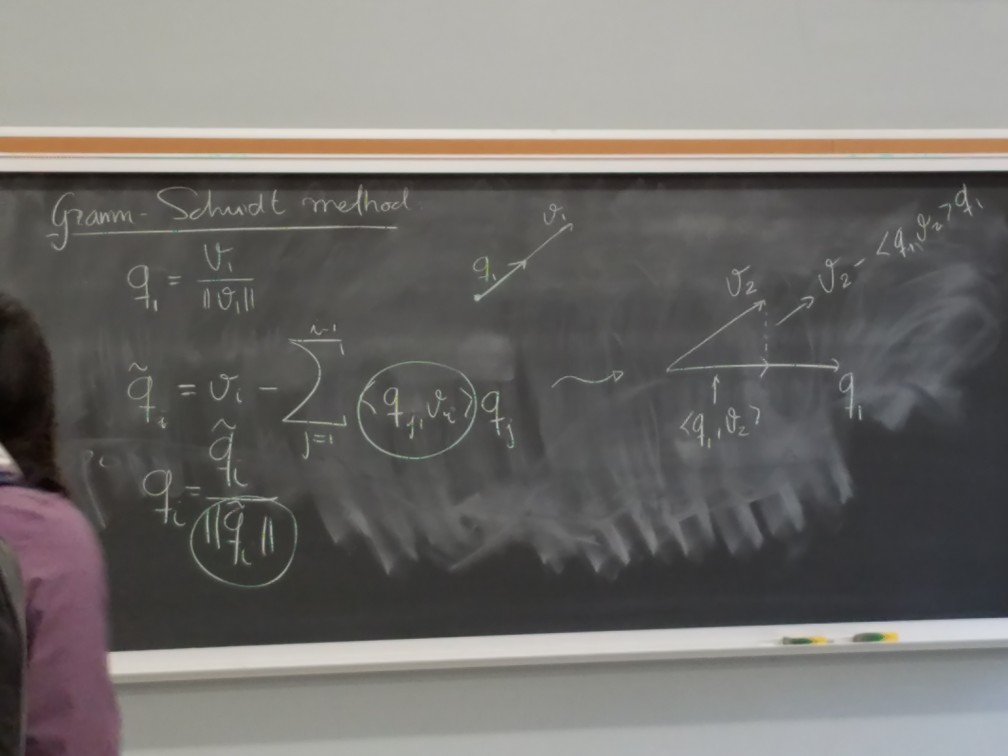 Gramm-Schmidt method
q₁ = v₁ / ||v₁||
q̃ᵢ = vᵢ - Σ_{j=1}^{i-1} <qⱼ, vᵢ> qⱼ
qᵢ = q̃ᵢ / ||q̃ᵢ||
v₁
q₁
v₂
v₂ - <q₁, v₂> q₁
q₁
<q₁, v₂>